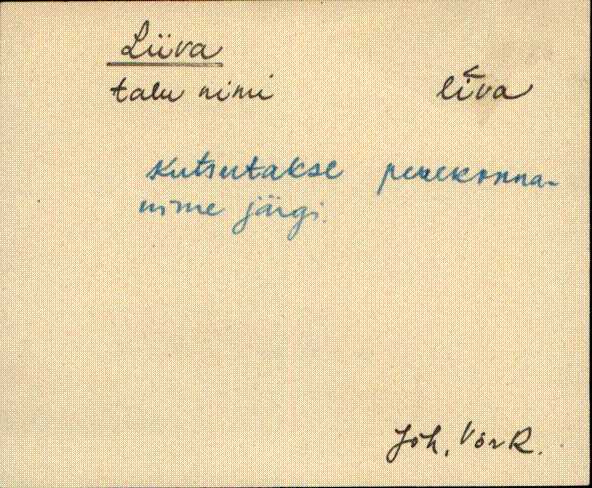 Liiva
talu nimi líva
Kutsutakse perekonna-
nime järgi.
Joh. Võrk.